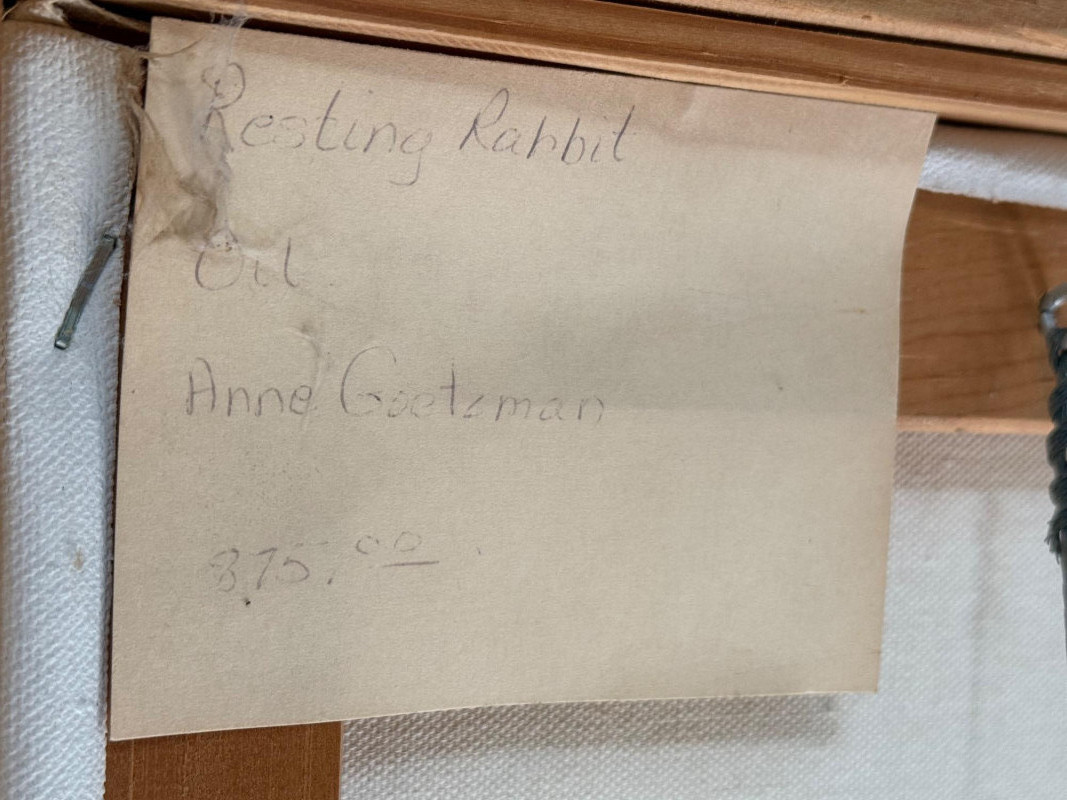 Resting Rabbit
Oil
Anne Goetzman
375.00